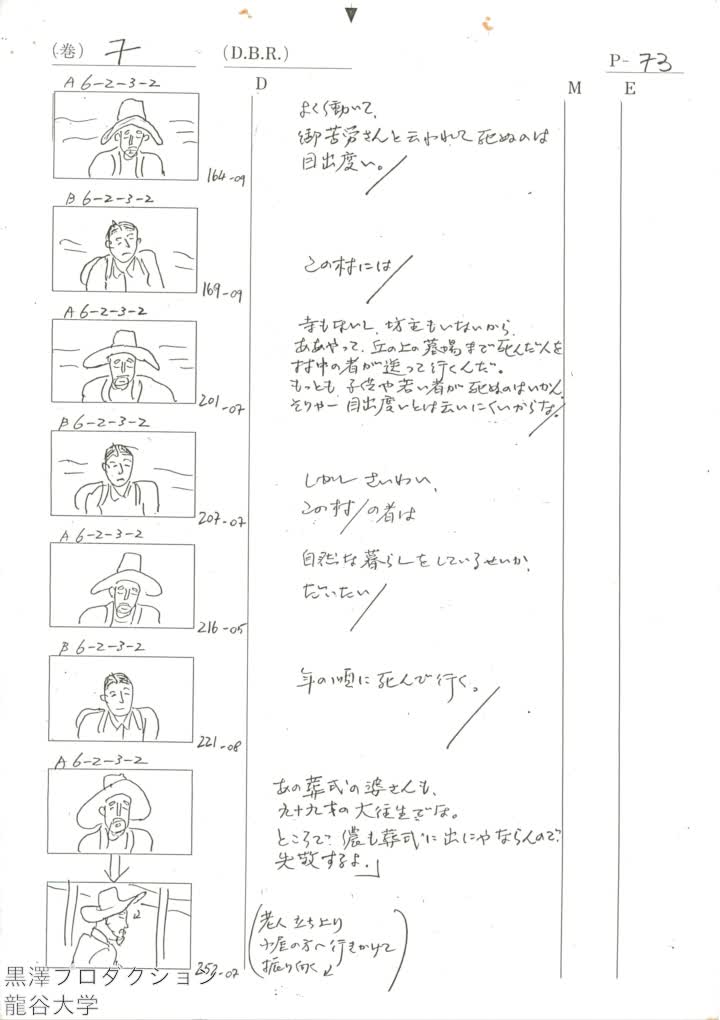 (巻) 7 (D.B.R.) P- 73
D M E
A 6-2-3-2
よく働いて、
御苦労さんと云われて死ぬのは
目出度い。
164-09
B 6-2-3-2
この村には
169-09
A 6-2-3-2
寺もないし、坊主もいないから、
ああやって、丘の上の墓場まで死んだ人を
村中の者が送って行くんだ。
もっとも、子供や若い者が死ぬのはいかん。
そりゃー目出度いとは云いにくいからな。
201-07
B 6-2-3-2
しかし さいわい、
この村/の者は
207-07
A 6-2-3-2
自然な暮らしをしているせいか、
だいたい
216-05
B 6-2-3-2
年の順に死んで行く。
221-08
A 6-2-3-2
あの葬式の婆さんも、
九十九才の大往生でな。
ところで、儂も葬式に出にゃならんので
失敬するよ。」
(老人立ち上り
小屋の方へ行きかけて
振り向く)
252-07
黒澤プロダクション
龍谷大学